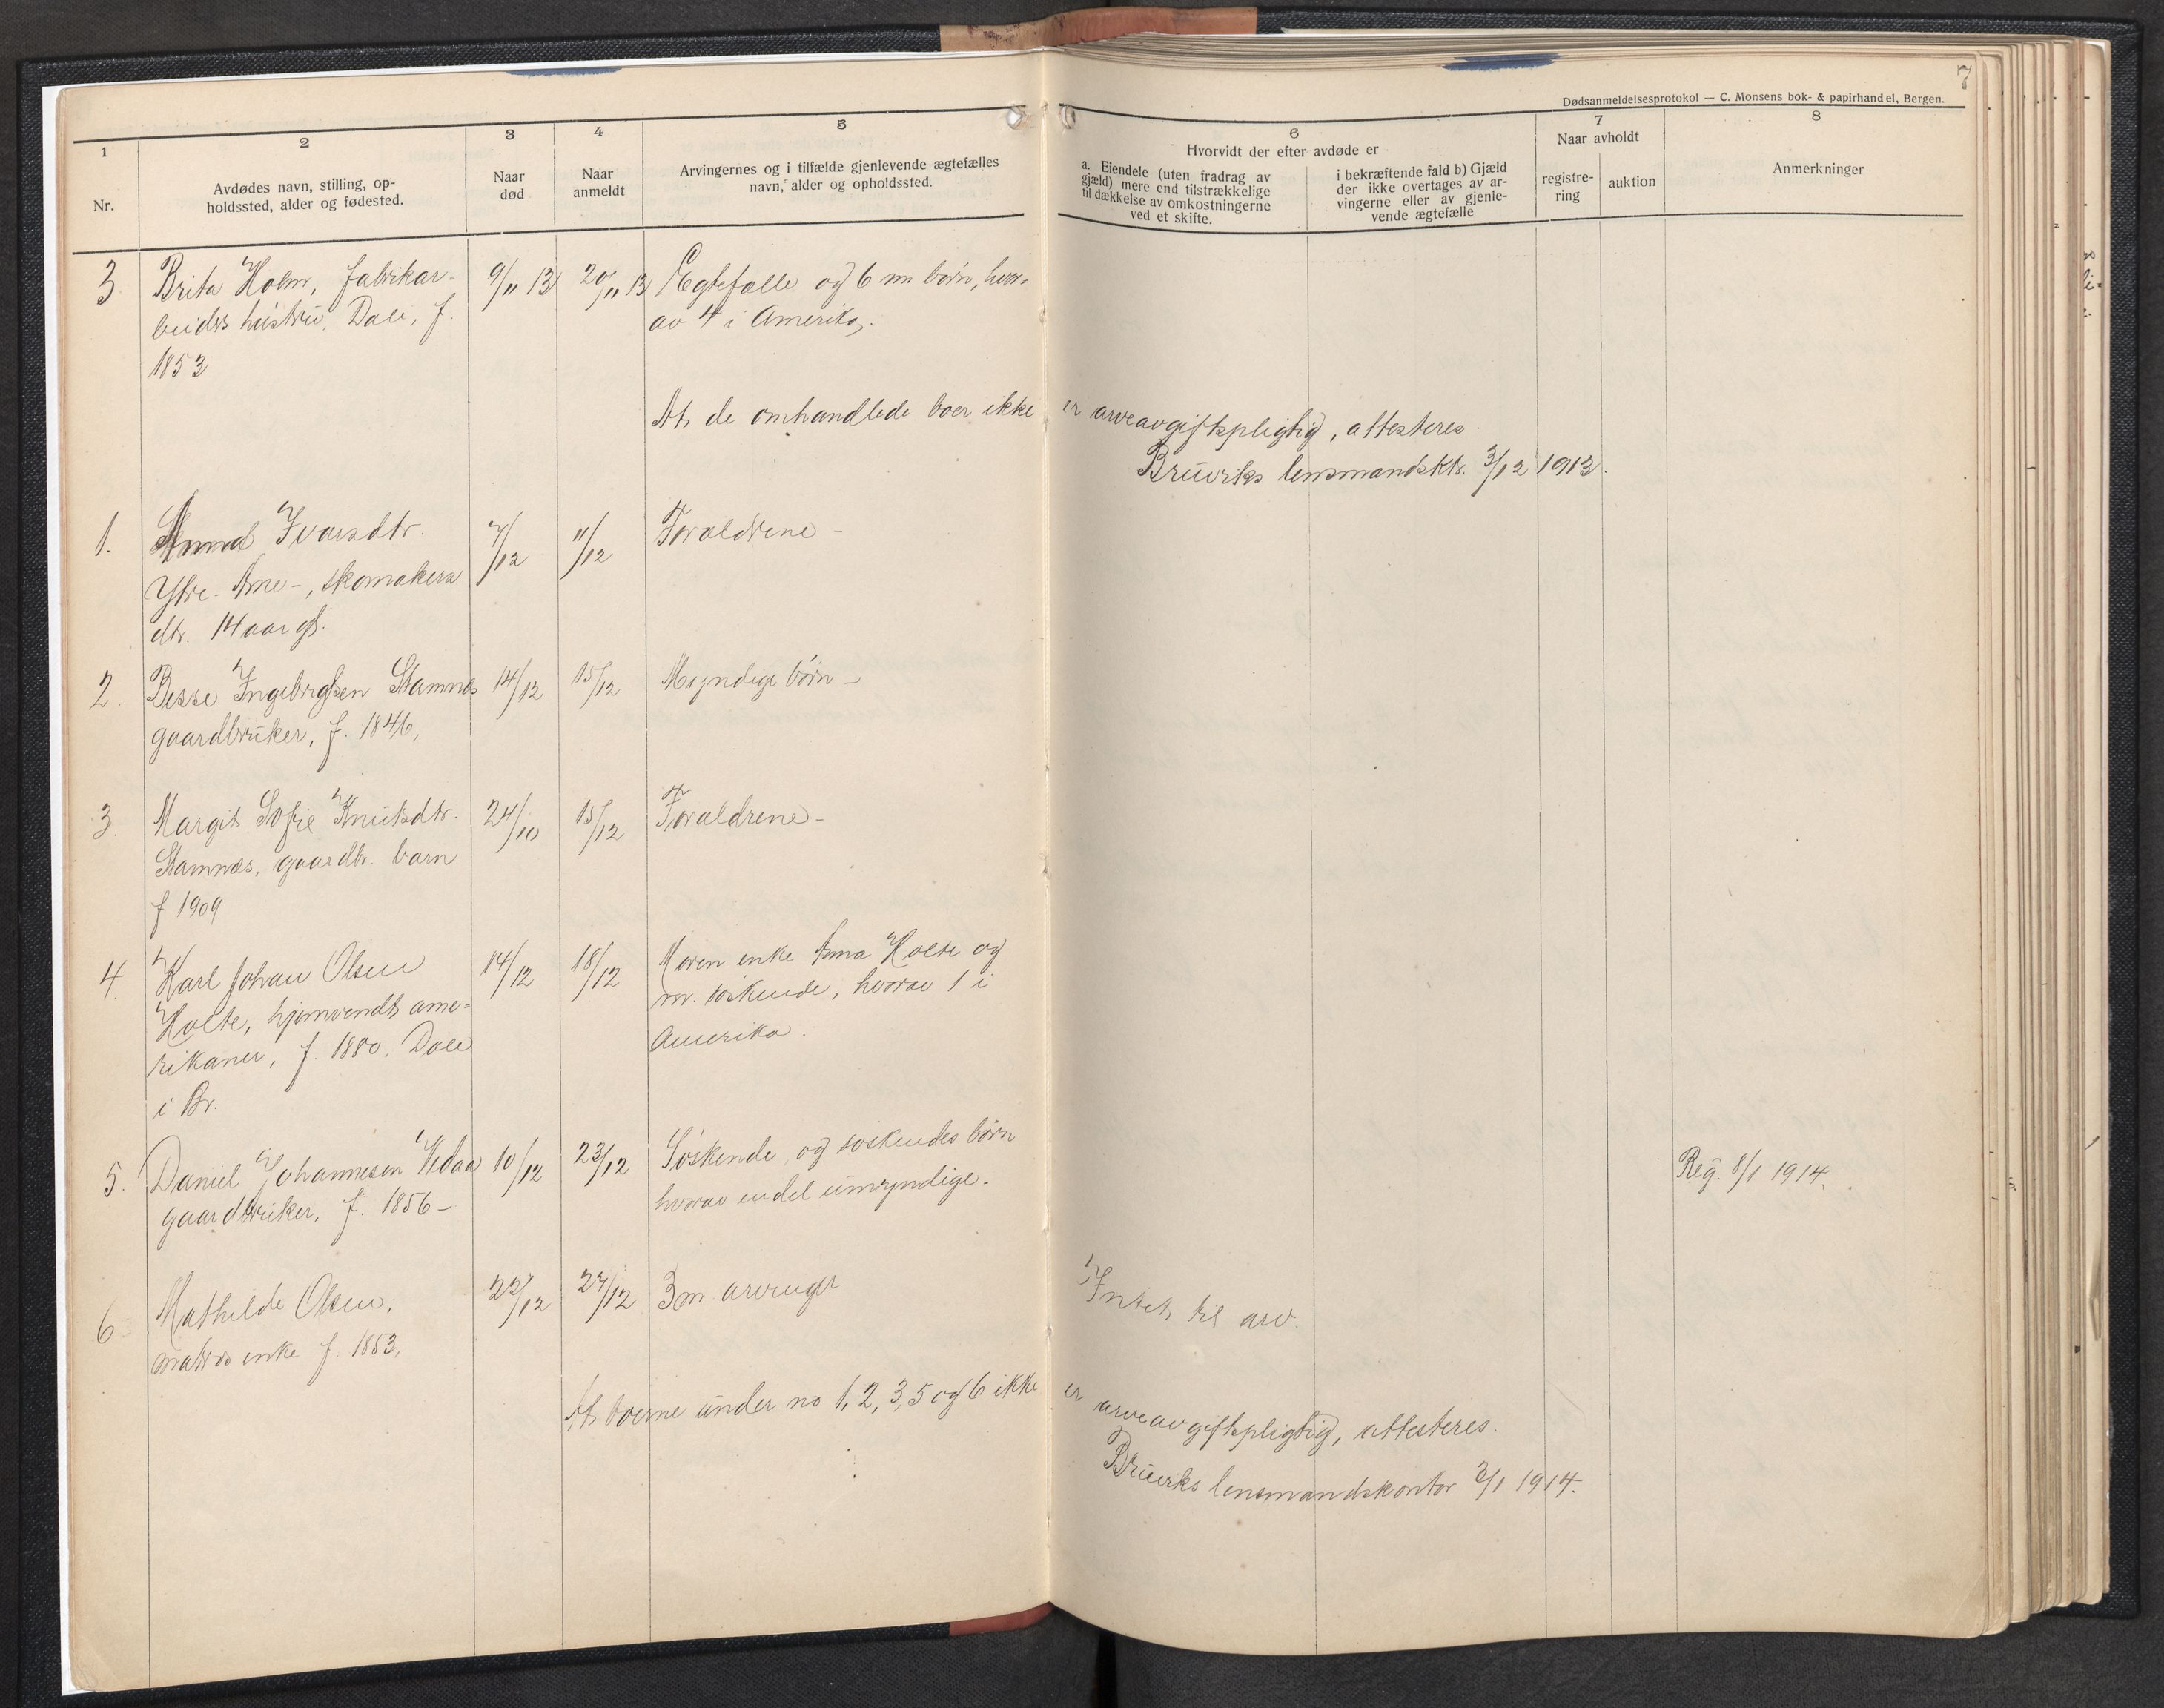 7
Dødsanmeldelsesprotokol — C. Monsens bok- & papirhandel, Bergen.
1
Nr.
2
Avdødes navn, stilling, op-
holdssted, alder og fødested.
3
Naar
død
4
Naar
anmeldt
5
Arvingernes og i tilfælde gjenlevende ægtefælles
navn, alder og opholdssted.
6
Hvorvidt der efter avdøde er
a. Eiendele (uten fradrag av
gjæld) mere end tilstrækkelige
til dækkelse av omkostningerne
ved et skifte.
i bekræftende fald b) Gjæld
der ikke overtages av ar-
vingerne eller av gjenle-
vende ægtefælle
7
Naar avholdt
registre-
ring
auktion
8
Anmerkninger
3 Brita Holm, fabrikar- 9/11 13 20/11 13 Ægtefælle og 6 m børn, hvor-
beiders hustru, Dale, f. av 4 i Amerika.
1853
At de omhandlede boer ikke er arveavgiftspligtig, attesteres.
Bruviks lensmandsktr. 3/12 1913.
1. Anna Ivarsdtr. 7/12 11/12 Forældrene –
Ytre-Arne-, skomakers
dtr. 14 aar gl.
2. Besse Ingebrigtsen Stamnes 14/12 15/12 Myndige børn –
gaardbruker, f. 1846,
3. Margit Sofie Knutsdtr. 24/10 15/12 Forældrene –
Stamnæs, gaardbr. barn
f 1909
4. Karl Johan Olsen 14/12 18/12 Moren enke Anna Holte og
Holte, hjemvendt ame- m. søskende, hvorav 1 i
rikaner, f. 1880, Dale Amerika.
i Br.
5. Daniel Johannesen Vedaa 10/12 23/12 Søskende og søskendes børn Reg. 8/1 1914.
gaardbruker, f. 1856 – hvorav endel umyndige.
6 Mathilde Olsen, 22/12 27/12 3 m arvinger Intet til arv.
matros enke f. 1853,
At boerne under no 1, 2, 3, 5 og 6 ikke er arveavgiftspligtig, attesteres.
Bruviks lensmandskontor 3/1 1914.